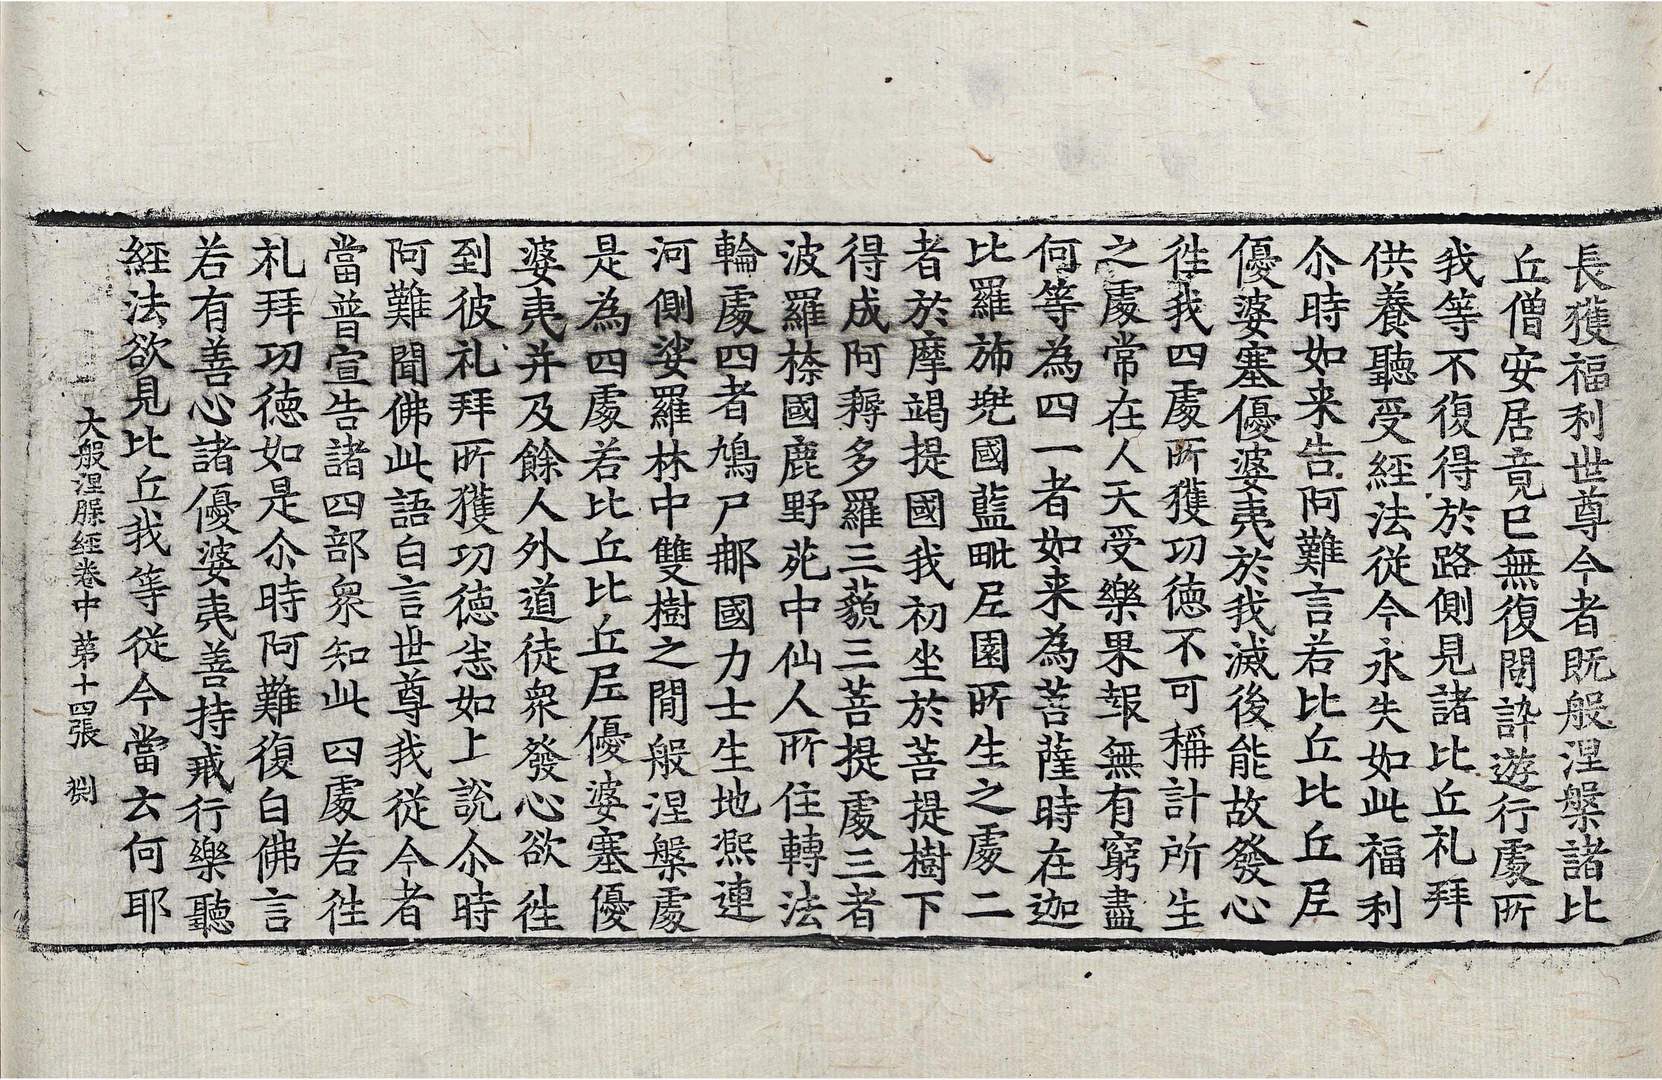 長獲福利世尊今者既般涅槃諸比
丘僧安居竟已無復問訊遊行處所
我等不復得於路側見諸比丘礼拜
供養聽受經法從今永失如此福利
尒時如来告阿難言若比丘比丘尼
優婆塞優婆夷於我滅後能故發心
徃我四處所獲功德不可稱計所生
之處常在人天受樂果報無有窮盡
何等為四一者如来為菩薩時在迦
比羅斾兠國藍毗尼園所生之處二
者於摩竭提國我初坐於菩提樹下
得成阿耨多羅三藐三菩提處三者
波羅㮈國鹿野苑中仙人所住轉法
輪處四者鳩尸那國力士生地熈連
河側娑羅林中雙樹之間般涅槃處
是為四處若比丘比丘尼優婆塞優
婆夷并及餘人外道徒衆發心欲徃
到彼礼拜所獲功德悉如上說尒時
阿難聞佛此語白言世尊我從今者
當普宣告諸四部衆知此四處若徃
礼拜功德如是尒時阿難復白佛言
若有善心諸優婆夷善持戒行樂聽
經法欲見比丘我等從今當云何耶
大般涅槃經卷中 苐十四張